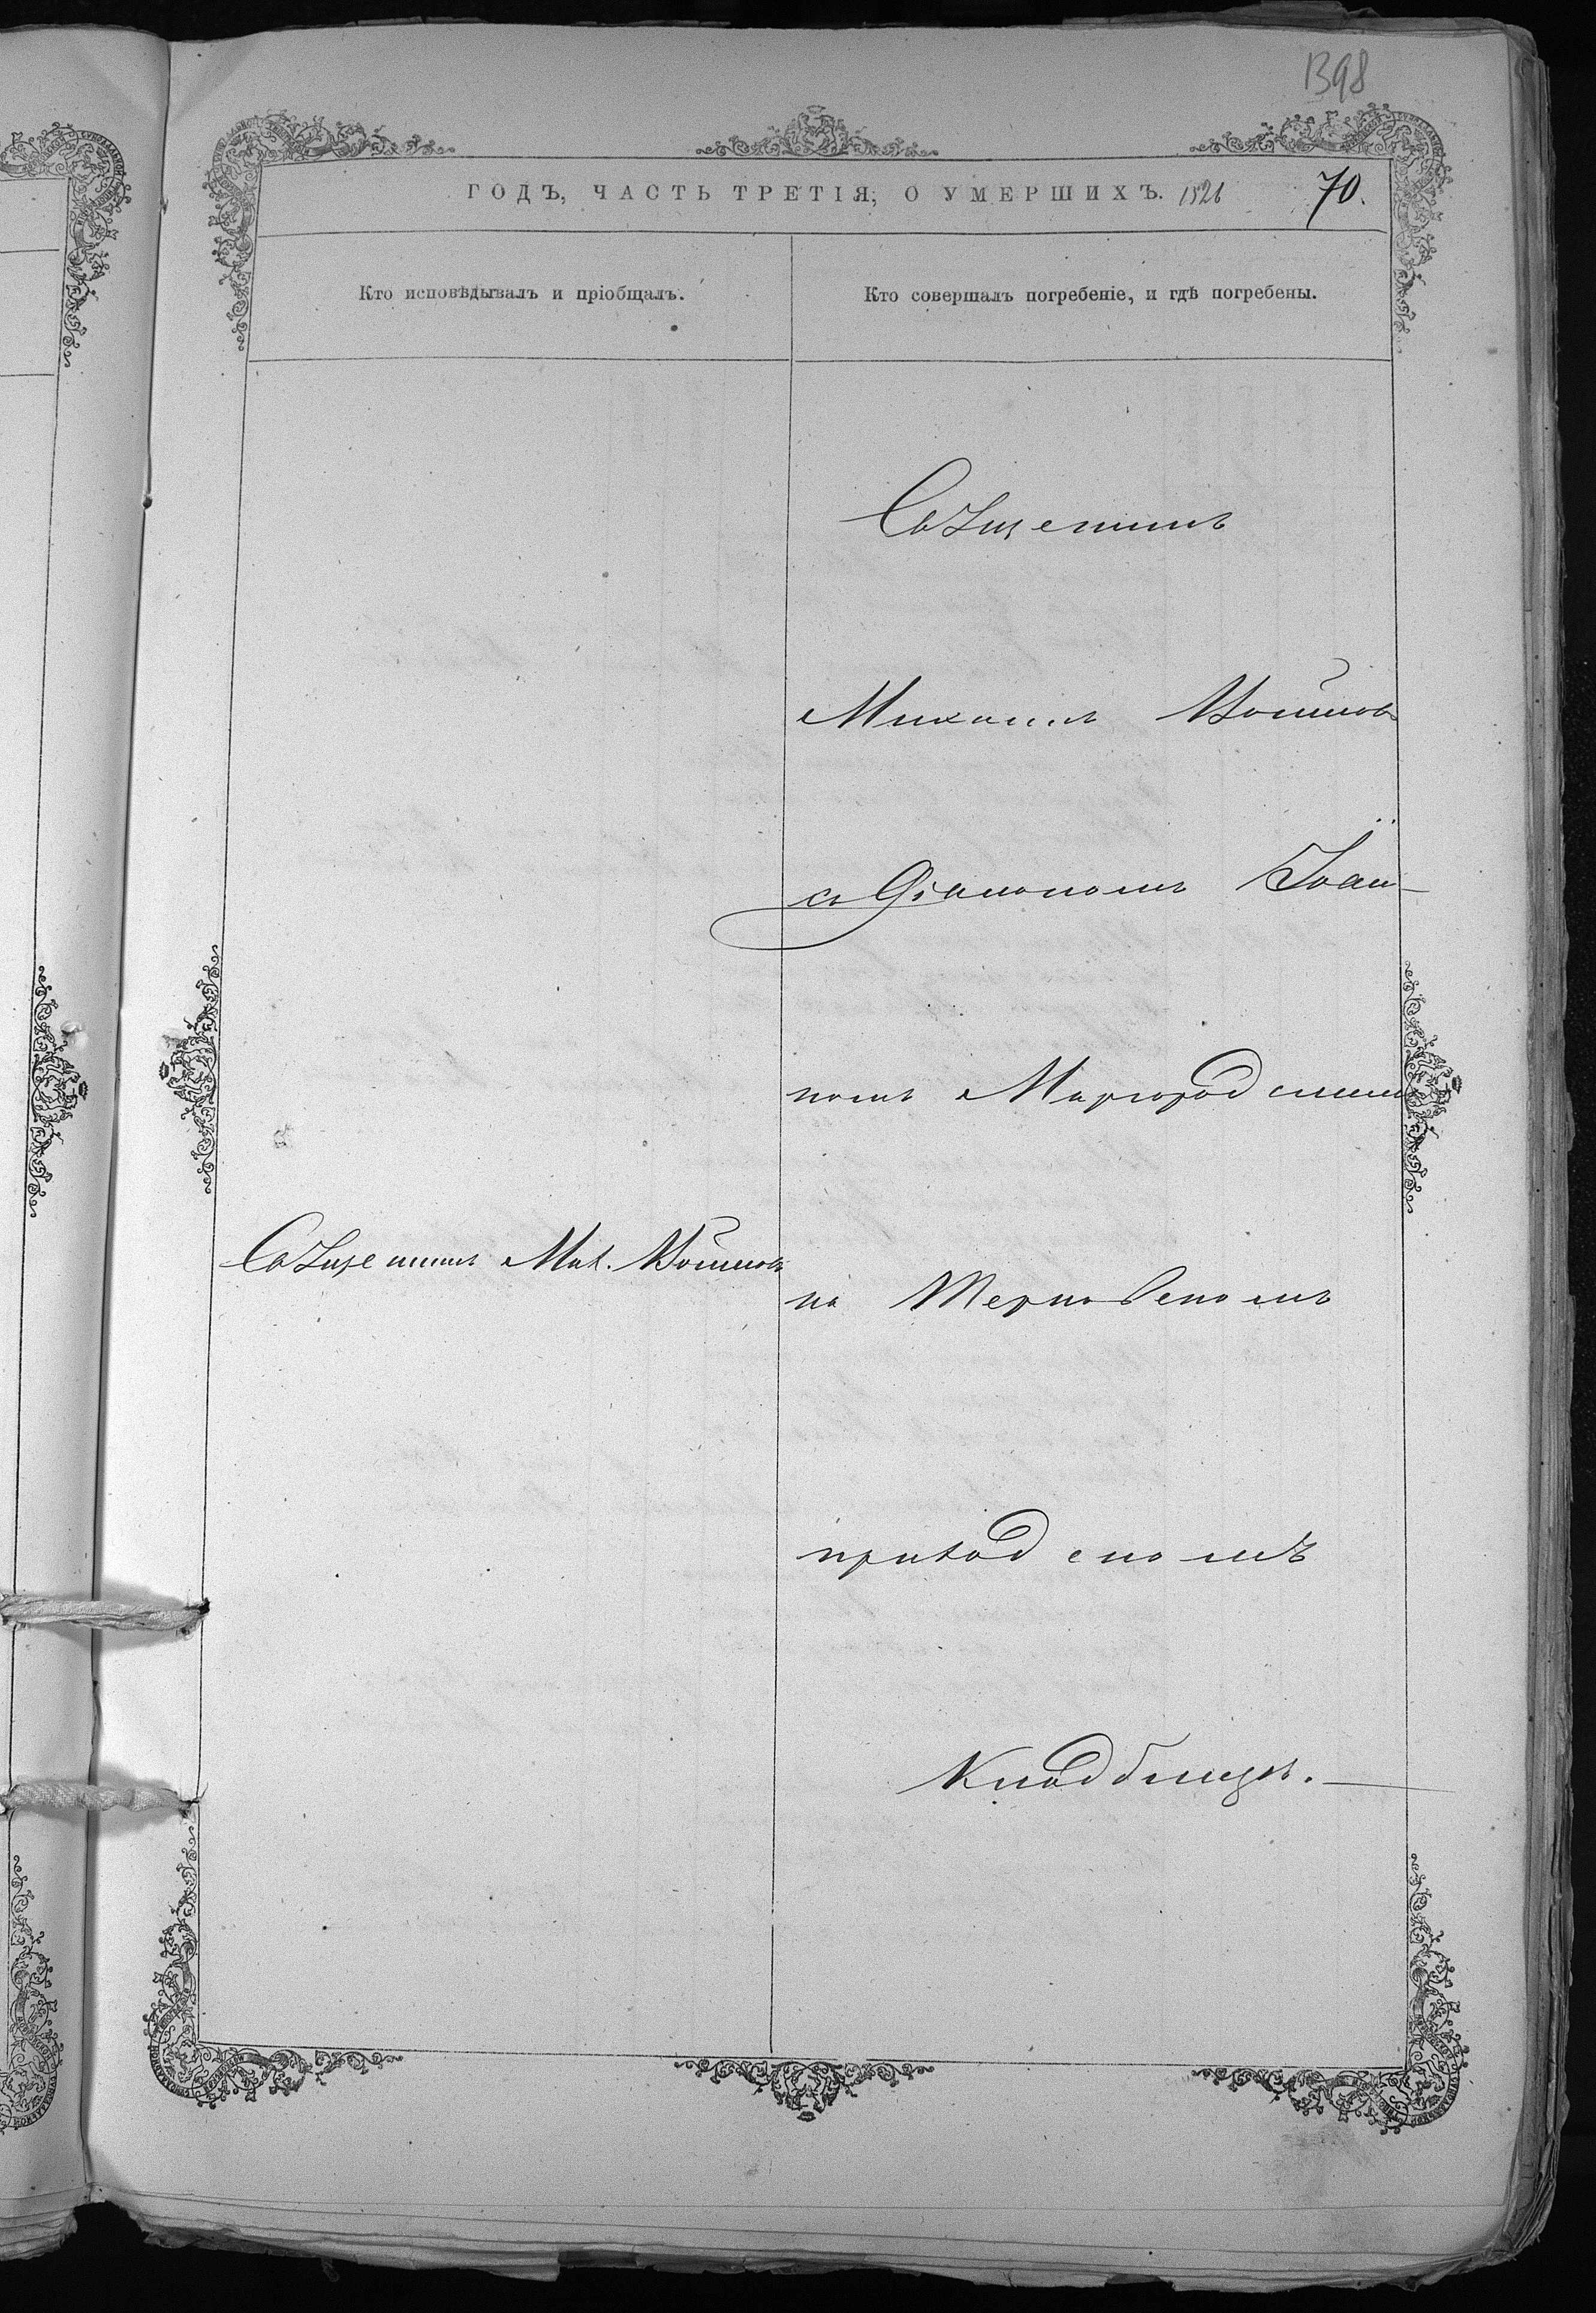 1398
ГОДЪ, ЧАСТЬ ТРЕТІЯ, О УМЕРШИХЪ. 1526 70.
Кто исповѣдывалъ и пріобщалъ.
Кто совершалъ погребеніе, и гдѣ погребены.
Священникъ Мих.
Священникъ
Михаилъ
съ Діакономъ Іоан-
номъ Миргородскимъ
на Терновскомъ
приходскомъ
Кладбищѣ.